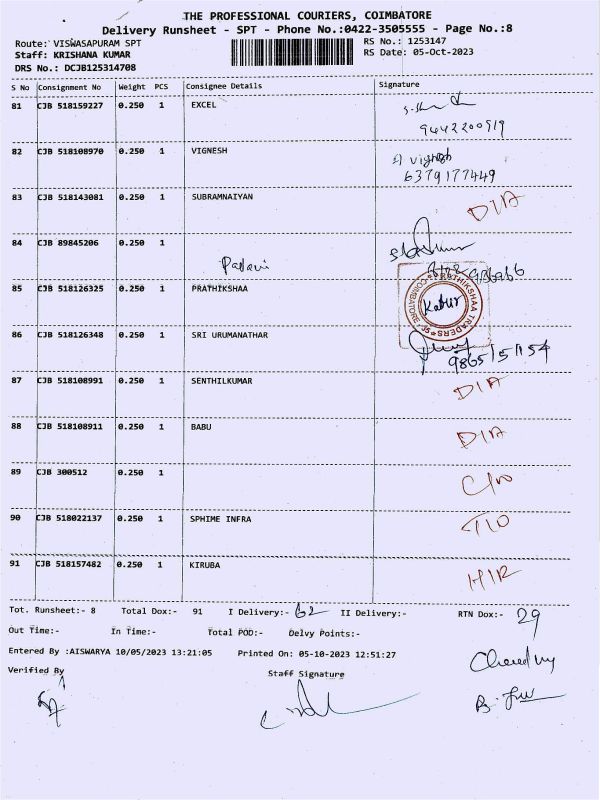 THE PROFESSIONAL COURIERS, COIMBATORE
Delivery Runsheet - SPT - Phone No.:0422-3505555 - Page No.:8
Route: VISWASAPURAM SPT RS No.: 1253147
Staff: KRISHANA KUMAR RS Date: 05-Oct-2023
DRS No.: DCJB125314708
S No Consignment No Weight PCS Consignee Details Signature
81 CJB 518159227 0.250 1 EXCEL
9442200919
82 CJB 518108970 0.250 1 VIGNESH vignesh
6379177449
83 CJB 518143081 0.250 1 SUBRAMNAIYAN D/A
84 CJB 89845206 0.250 1
85 CJB 518126325 0.250 1 PRATHIKSHAA
PRATHIKSHAA TRADERS COIMBATORE - 35
86 CJB 518126348 0.250 1 SRI URUMANATHAR
9865151154
87 CJB 518108991 0.250 1 SENTHILKUMAR D/A
88 CJB 518108911 0.250 1 BABU D/A
89 CJB 300512 0.250 1
90 CJB 518022137 0.250 1 SPHIME INFRA
91 CJB 518157482 0.250 1 KIRUBA
Tot. Runsheet:- 8 Total Dox:- 91 I Delivery:- 62 II Delivery:- RTN Dox:- 29
Out Time:- In Time:- Total POD:- Delvy Points:-
Entered By :AISWARYA 10/05/2023 13:21:05 Printed On: 05-10-2023 12:51:27
Verified By Staff Signature